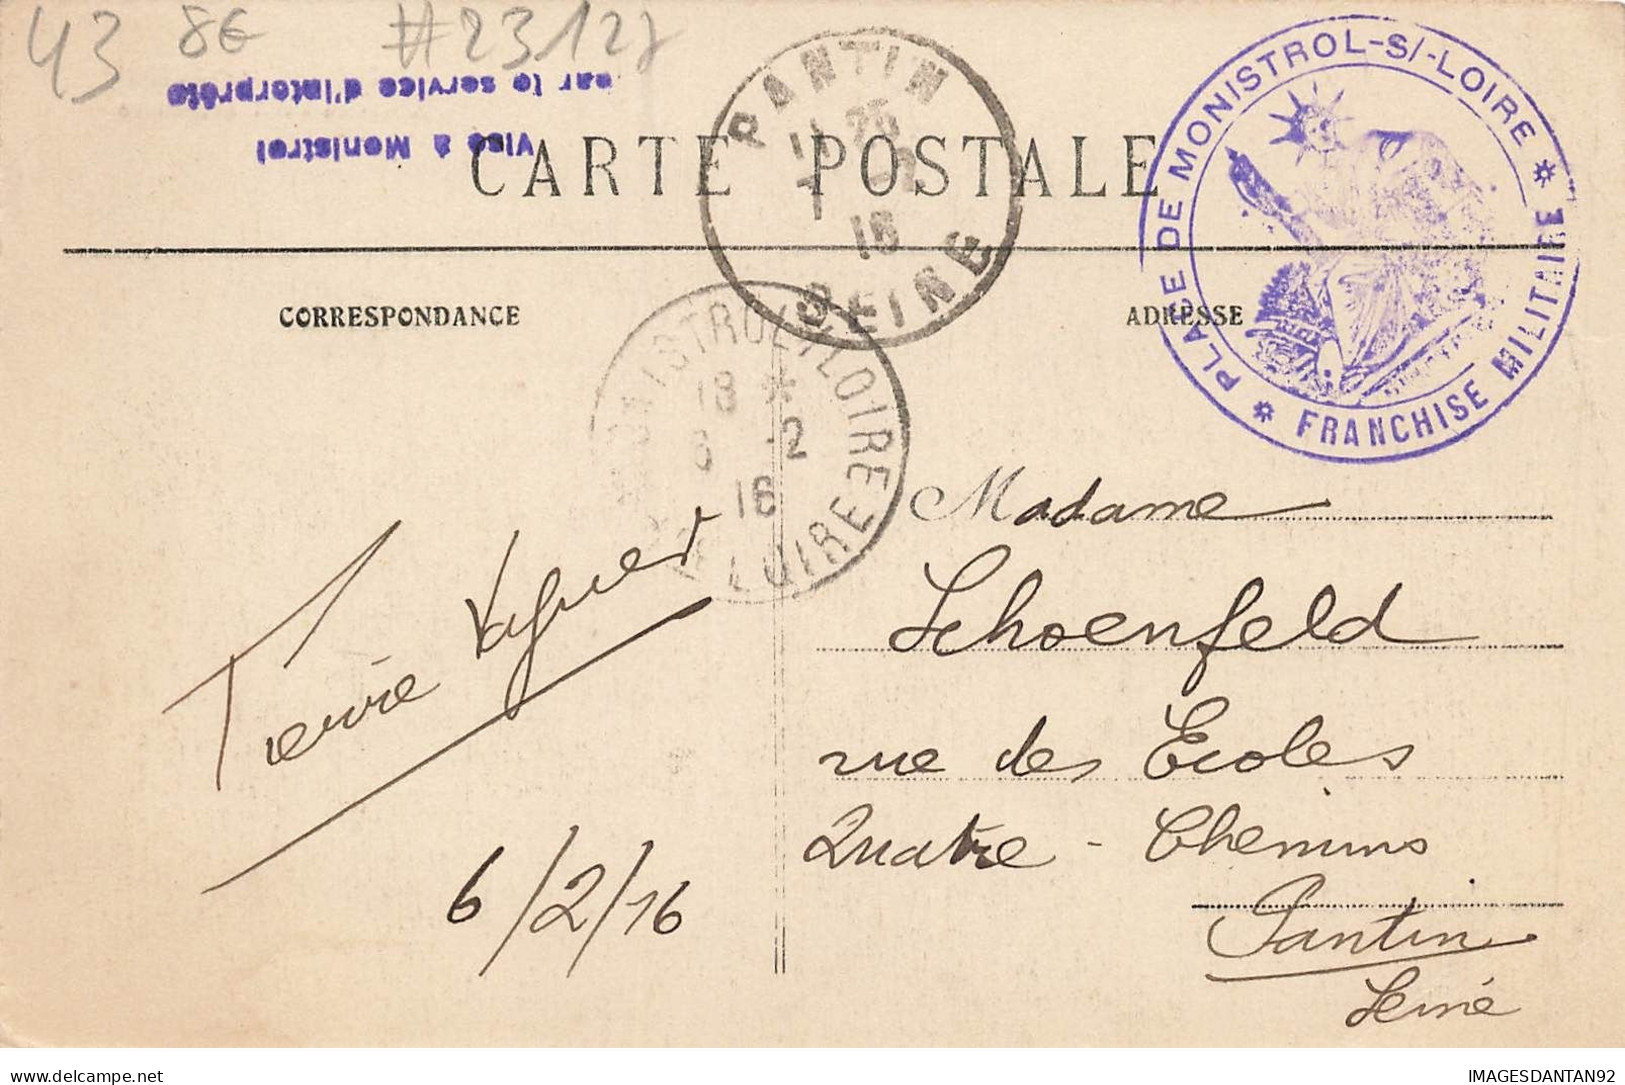 43 8€ #23127
Visé à Monistrol
par le service d'interprète
CARTE POSTALE
PANTIN
SEINE
PLACE DE MONISTROL-S/-LOIRE
FRANCHISE MILITAIRE
CORRESPONDANCE
ADRESSE
MONISTROL S/ LOIRE
18 *
6 -2
16
Hte LOIRE
Madame
Schoenfeld
rue des Ecoles
Quatre - Chemins
Pantin
Seine
Pierre Vaguer
6/2/16
www.delcampe.net
IMAGESDANTAN92